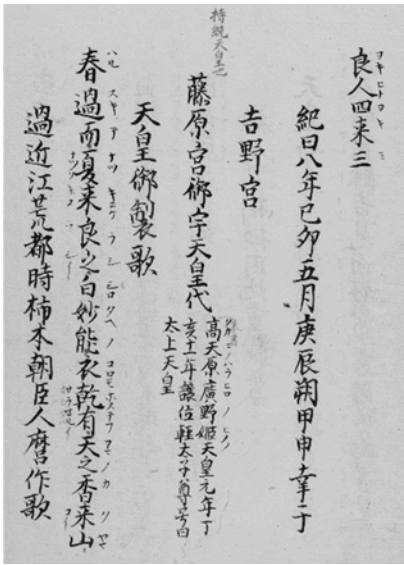 ヨキヒトヨキミ
良人四来三
紀曰八年己卯五月庚辰朔甲申幸于
吉野宮
持統天皇也
藤原宮御宇天皇代
高天原廣野姫天皇元年丁
亥十一年譲位軽太子尊号曰
太上天皇
天皇御製歌
春過而夏来良之白妙能衣乾有天之香来山
過近江荒都時柿本朝臣人麿作歌